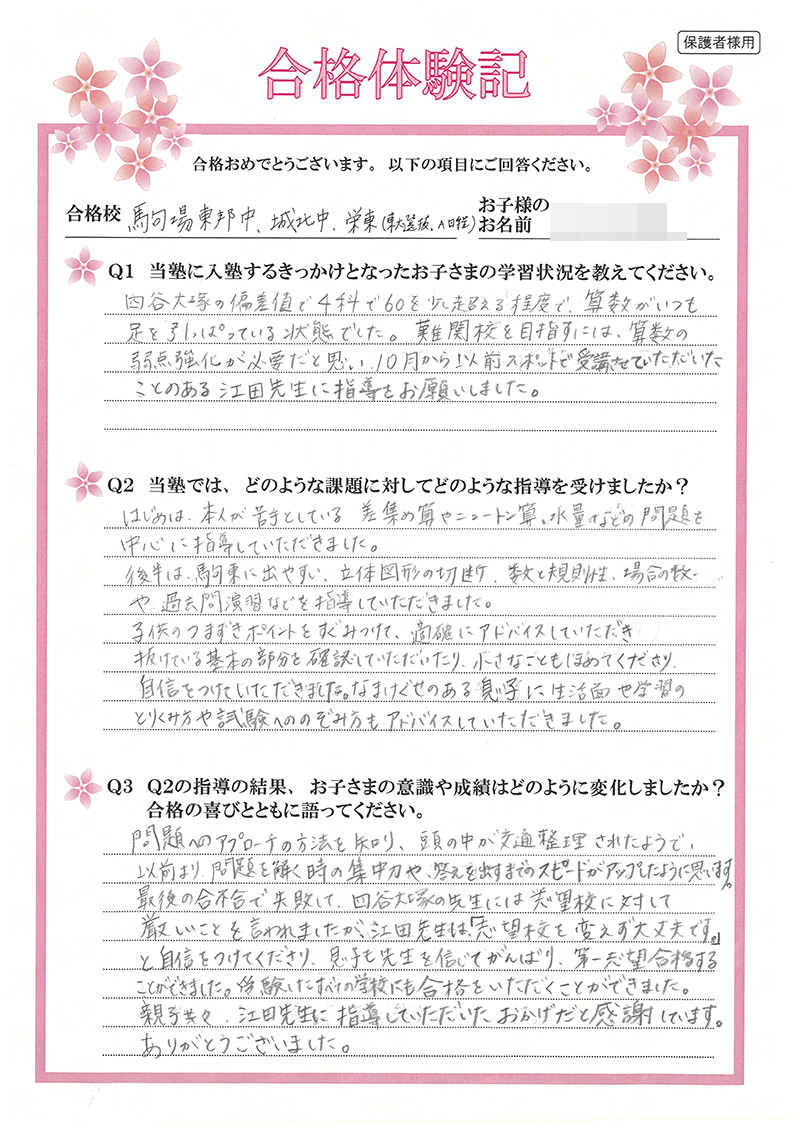 保護者様用
合格体験記
合格おめでとうございます。以下の項目にご回答ください。
合格校 駒句場東邦中、城北中、栄東(東大選抜、A日程)
お子様の
お名前
Q1 当塾に入塾するきっかけとなったお子さまの学習状況を教えてください。
四谷大塚の偏差値で4科で60を少し超える程度で、算数がいつも
足を引っぱっている状態でした。難関校を目指すには、算数の
弱点強化が必要だと思い、10月から以前スポットで受講させていただいた
ことのある江田先生に指導をお願いしました。
Q2 当塾では、どのような課題に対してどのような指導を受けましたか？
はじめは、本人が苦手としている 差集め算やニュートン算、水量などの問題を
中心に指導していただきました。
後半は、駒東に出やすい、立体図形の切断、数と規則性、場合の数
や過去問演習などを指導していただきました。
子供のつまずきポイントをすぐみつけて、適確にアドバイスしていただき
抜けている基本の部分を確認していただいたり、小さなこともほめてくださり、
自信をつけていただきました。なまけぐせのある息子に生活面や学習の
とりくみ方や試験へののぞみ方もアドバイスしていただきました。
Q3 Q2の指導の結果、お子さまの意識や成績はどのように変化しましたか？
合格の喜びとともに語ってください。
問題へのアプローチの方法を知り、頭の中が交通整理されたようで、
以前より、問題を解く時の集中力や、答えを出すまでのスピードがアップしたように思います。
最後の合不合で失敗して、四谷大塚の先生には志望校に対して
厳しいことを言われましたが、江田先生は、「志望校を変えず大丈夫です。」
と自信をつけてくださり、息子も先生を信じてがんばり、第一志望合格する
ことができました。受験したすべての学校にも合格をいただくことができました。
親子共々、江田先生に指導していただいたおかげだと感謝しています。
ありがとうございました。